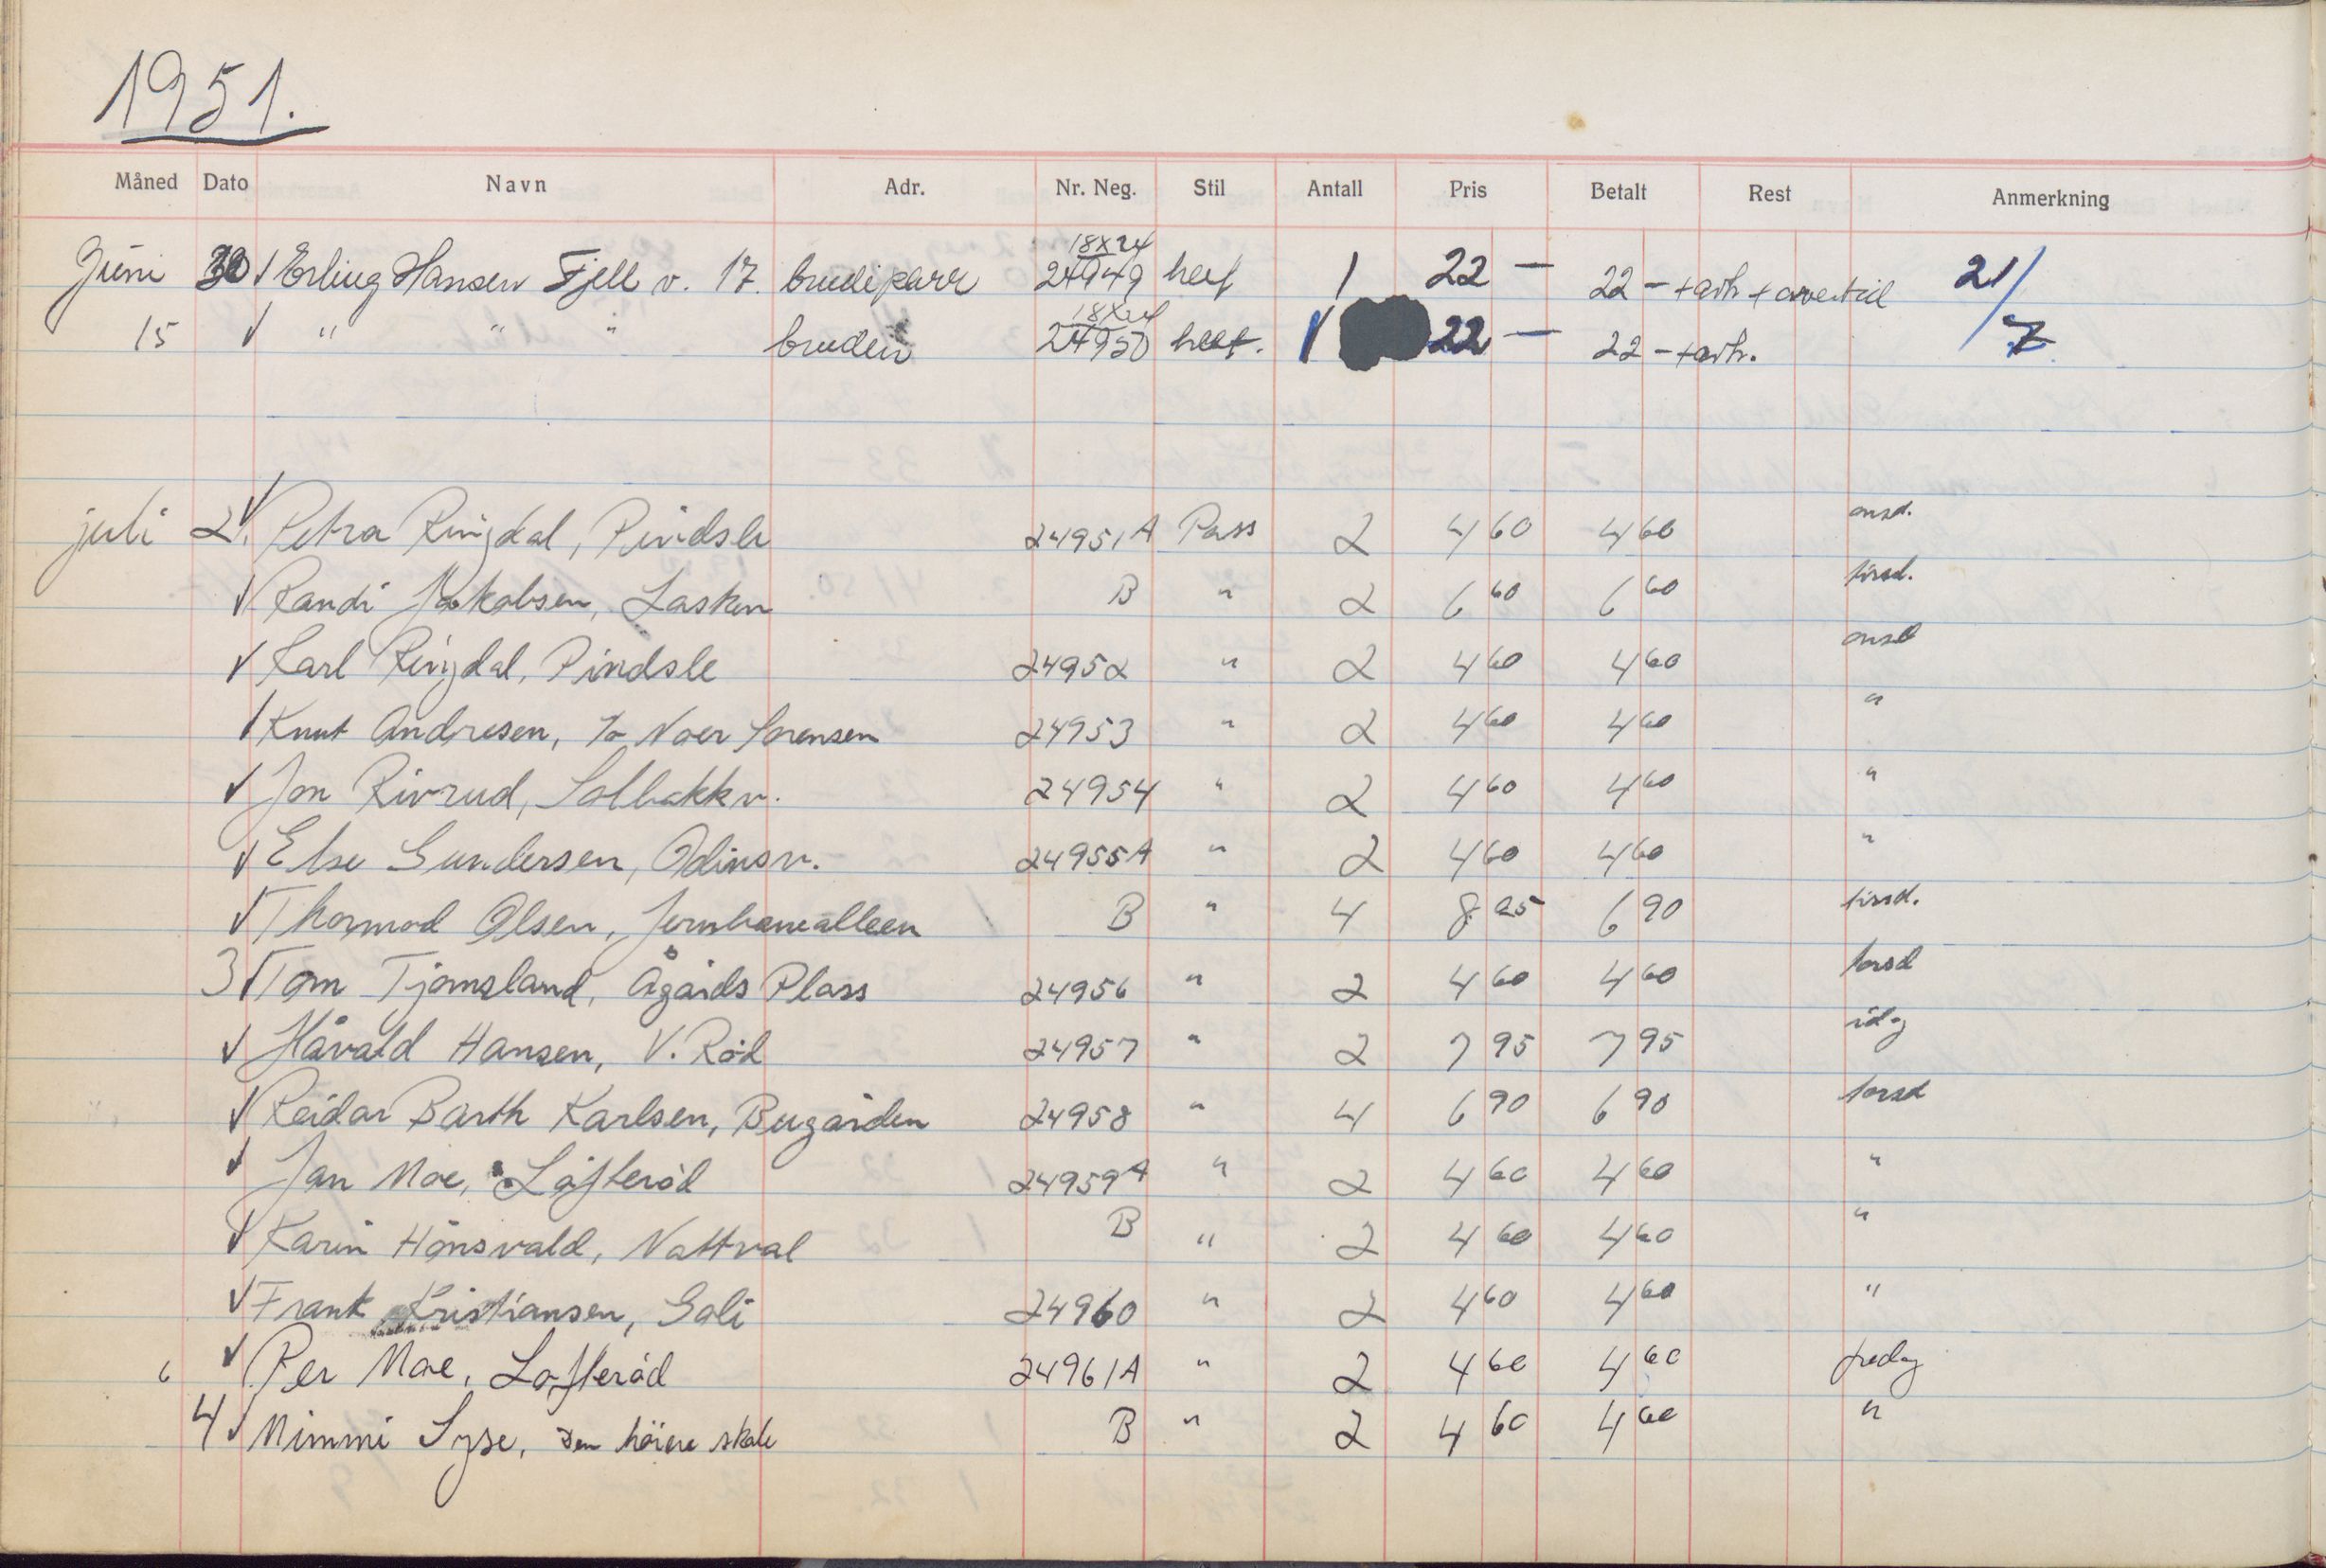 1951.
Måned Dato Navn Adr. Nr. Neg. Stil Antall Pris Betalt Rest Anmerkning
Juni 30 √ Erling Hansen Fjell v. 17. brudeparr 18x24 24949 helf 1 22 — 22 — + arb + overtid 21/7
15 √ " " " bruden 18x24 24950 helf. 1 22 — 22 — + arb.
juli 2. √ Petra Ringdal, Pindsle 24951A Pass 2 4 60 4 60 onsd.
√ Randi Jakobsen, Lasken B " 2 6 60 6 60 tirsd.
√ Karl Ringdal, Pindsle 24952 " 2 4 60 4 60 onsd
√ Knut Andresen, Noer Sørensen 24953 " 2 4 60 4 60 "
√ Jon Rivrud, Solbakkv. 24954 " 2 4 60 4 60 "
√ Else Gundersen, Odinsv. 24955A " 2 4 60 4 60 "
√ Thormod Olsen, Jernbanealleen B " 4 8 25 6 90 tirsd.
3 √ Tom Tjomsland, Ågårds Plass 24956 " 2 4 60 4 60 torsd
√ Håvald Hansen, V. Röd 24957 " 2 7 95 7 95 idag
√ Reidar Barth Karlsen, Bugården 24958 " 4 6 90 6 90 torsd
√ Jan Moe, Löfteröd 24959A " 2 4 60 4 60 "
√ Karin Hönsvald, Nattval B " 2 4 60 4 60 "
√ Frank Kristiansen, Goli 24960 " 2 4 60 4 60 "
6 √ Per Moe, Löfteröd 24961A " 2 4 60 4 60 fredag
4 √ Mimmi Syse, Den höiere skole B " 2 4 60 4 60 "